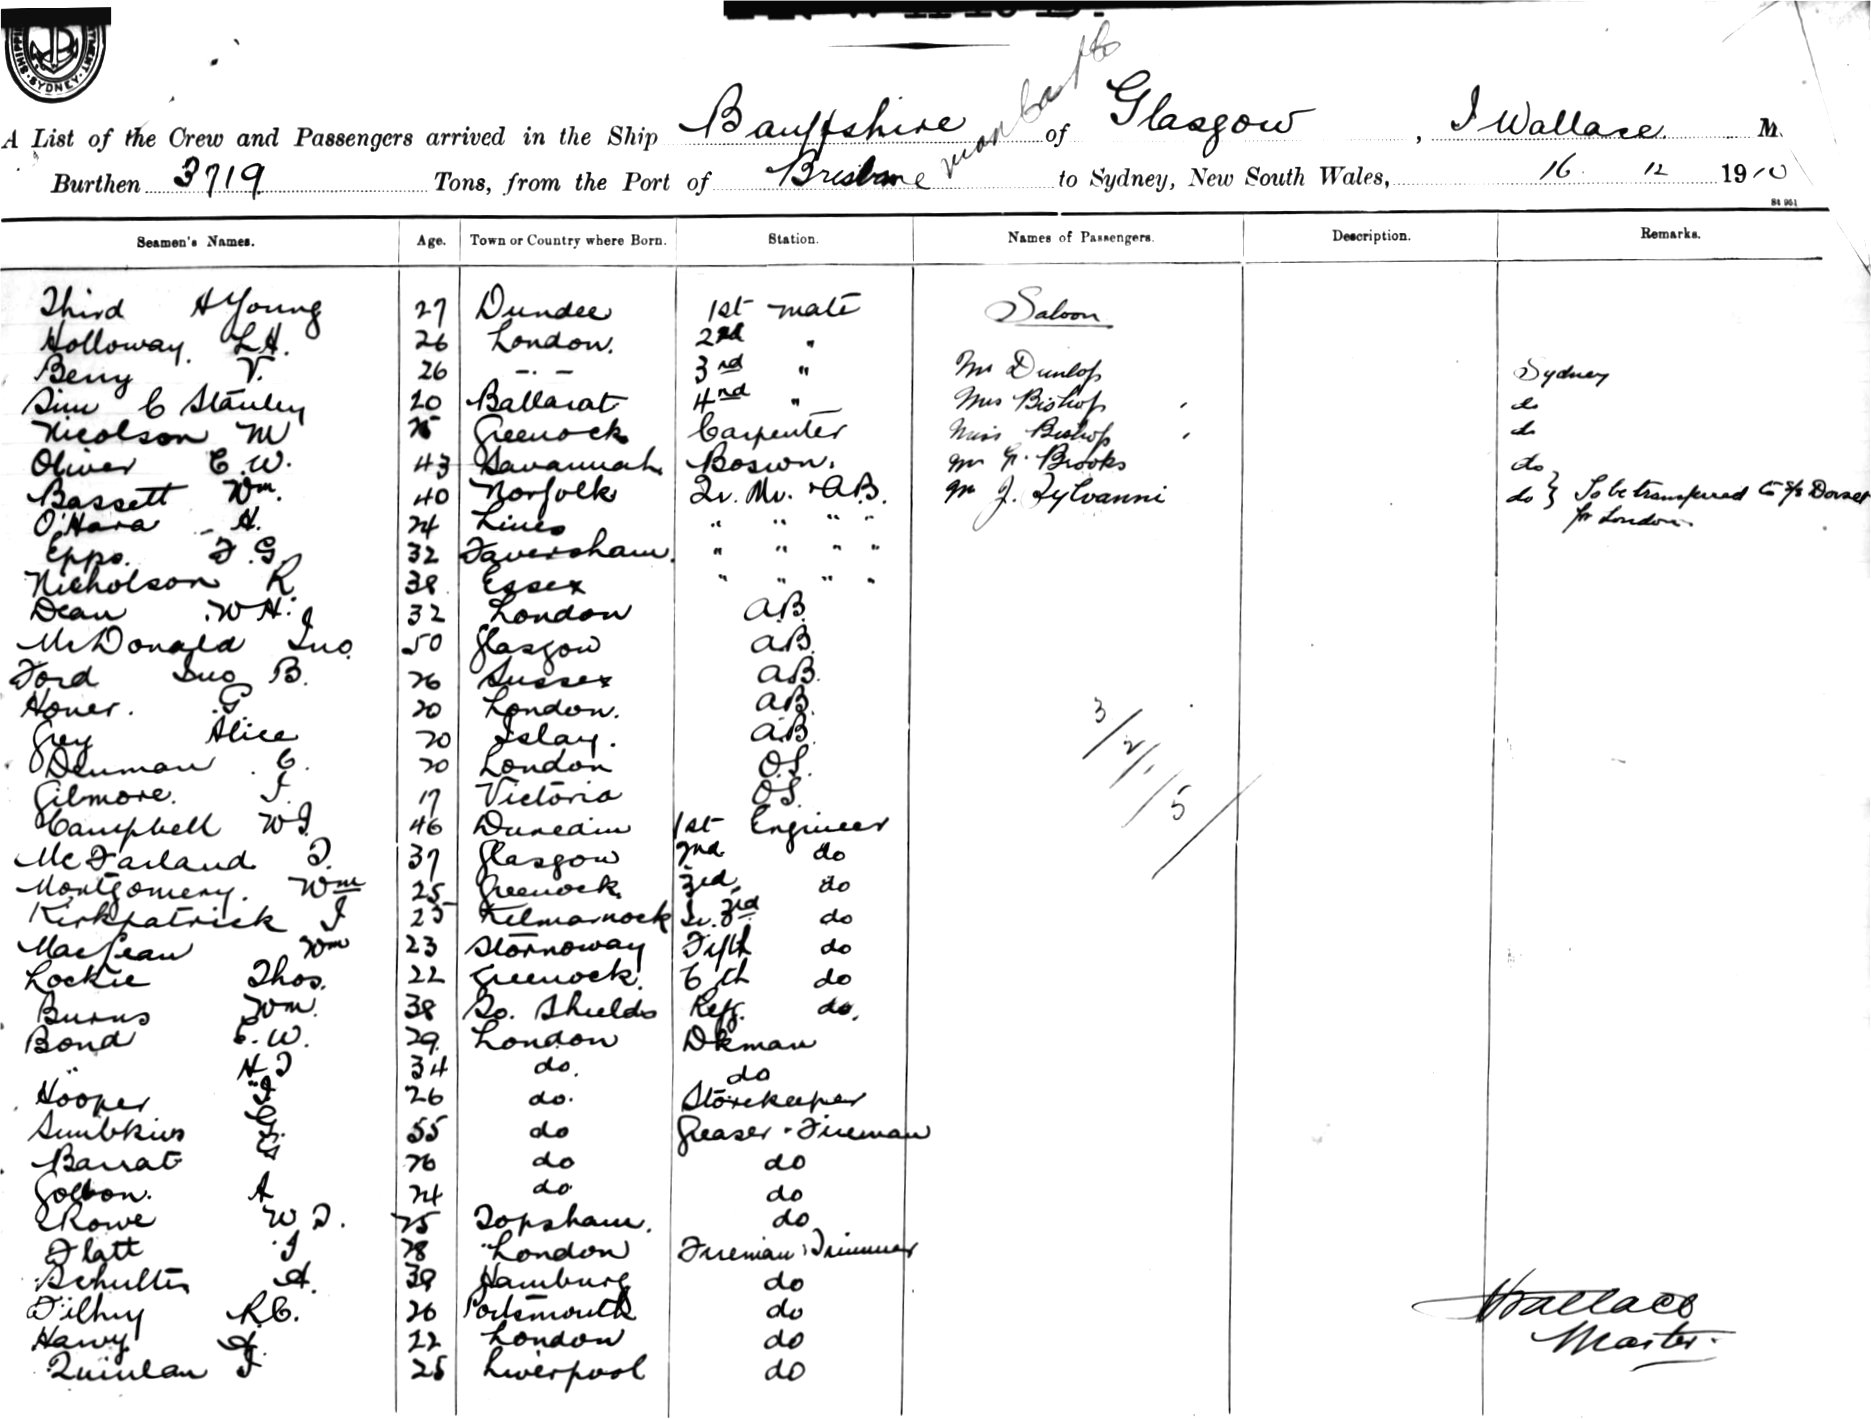 SYDNEY
A List of the Crew and Passengers arrived in the Ship Banffshire of Glasgow, J Wallace M.
Burthen 3719 Tons, from the Port of Brisbane to Sydney, New South Wales, 16 12 1910
Seamen's Names. Age. Town or Country where Born. Station. Names of Passengers. Description. Remarks.
Third A Young 27 Dundee 1st mate Saloon
Holloway. L.H. 26 London. 2nd "
Berry V. 26 - . - 3rd " Mr Dunlop Sydney
Sim C Stanley 20 Ballarat 4nd " Mrs Bishop do
Nicolson M 25 Greenock Carpenter Miss Bishop do
Oliver E.W. 43 Savannah Boswn. Mr G. Brooks do
Bassett Wm. 40 Norfolk Qr. Mr. + A.B. Mr J. Sylvanni do } To be transferred to S/S Dorset
O'Hara H. 24 Lincs " " " " for London
Epps. F.G 32 Faversham. " " " "
Nicholson R 38 Essex " " " "
Dean W H. 32 London A.B.
McDonald Jno. 50 Glasgow A.B.
Ford Jno B. 26 Sussex A.B.
Honer. G 20 London. A.B.
Grey Alice 20 Islay. A.B.
Denman C. 20 London O.S.
Gilmore. J. 17 Victoria O.S.
Campbell W J 46 Dunedin 1st Engineer
McFarland J. 37 Glasgow 2nd do
Montgomery. Wm 25 Greenock 3rd do
Kirkpatrick J 25 Kilmarnock Jr. 3rd do
MacLean Wm 23 Stornoway Fifth do
Lockie Thos. 22 Greenock. 6th do
Burns Wm. 38 So. Shields Refg. do.
Bond E.W. 29 London Dkman
" H J 34 do. do
Hooper J 26 do. Storekeeper
Simbkins G. 55 do Greaser - Fireman
Barrat G 26 do do
Golbon. A 24 do do
Rowe W J. 25 Topsham. do
Flatt J 28 London Fireman Trimmer
Schultes A. 39 Hamburg do
Tilley R.C. 26 Portsmouth do
Harry A. 22 London do
Quinlan J 25 Liverpool do
3/2/1/5/
J Wallace
Master.